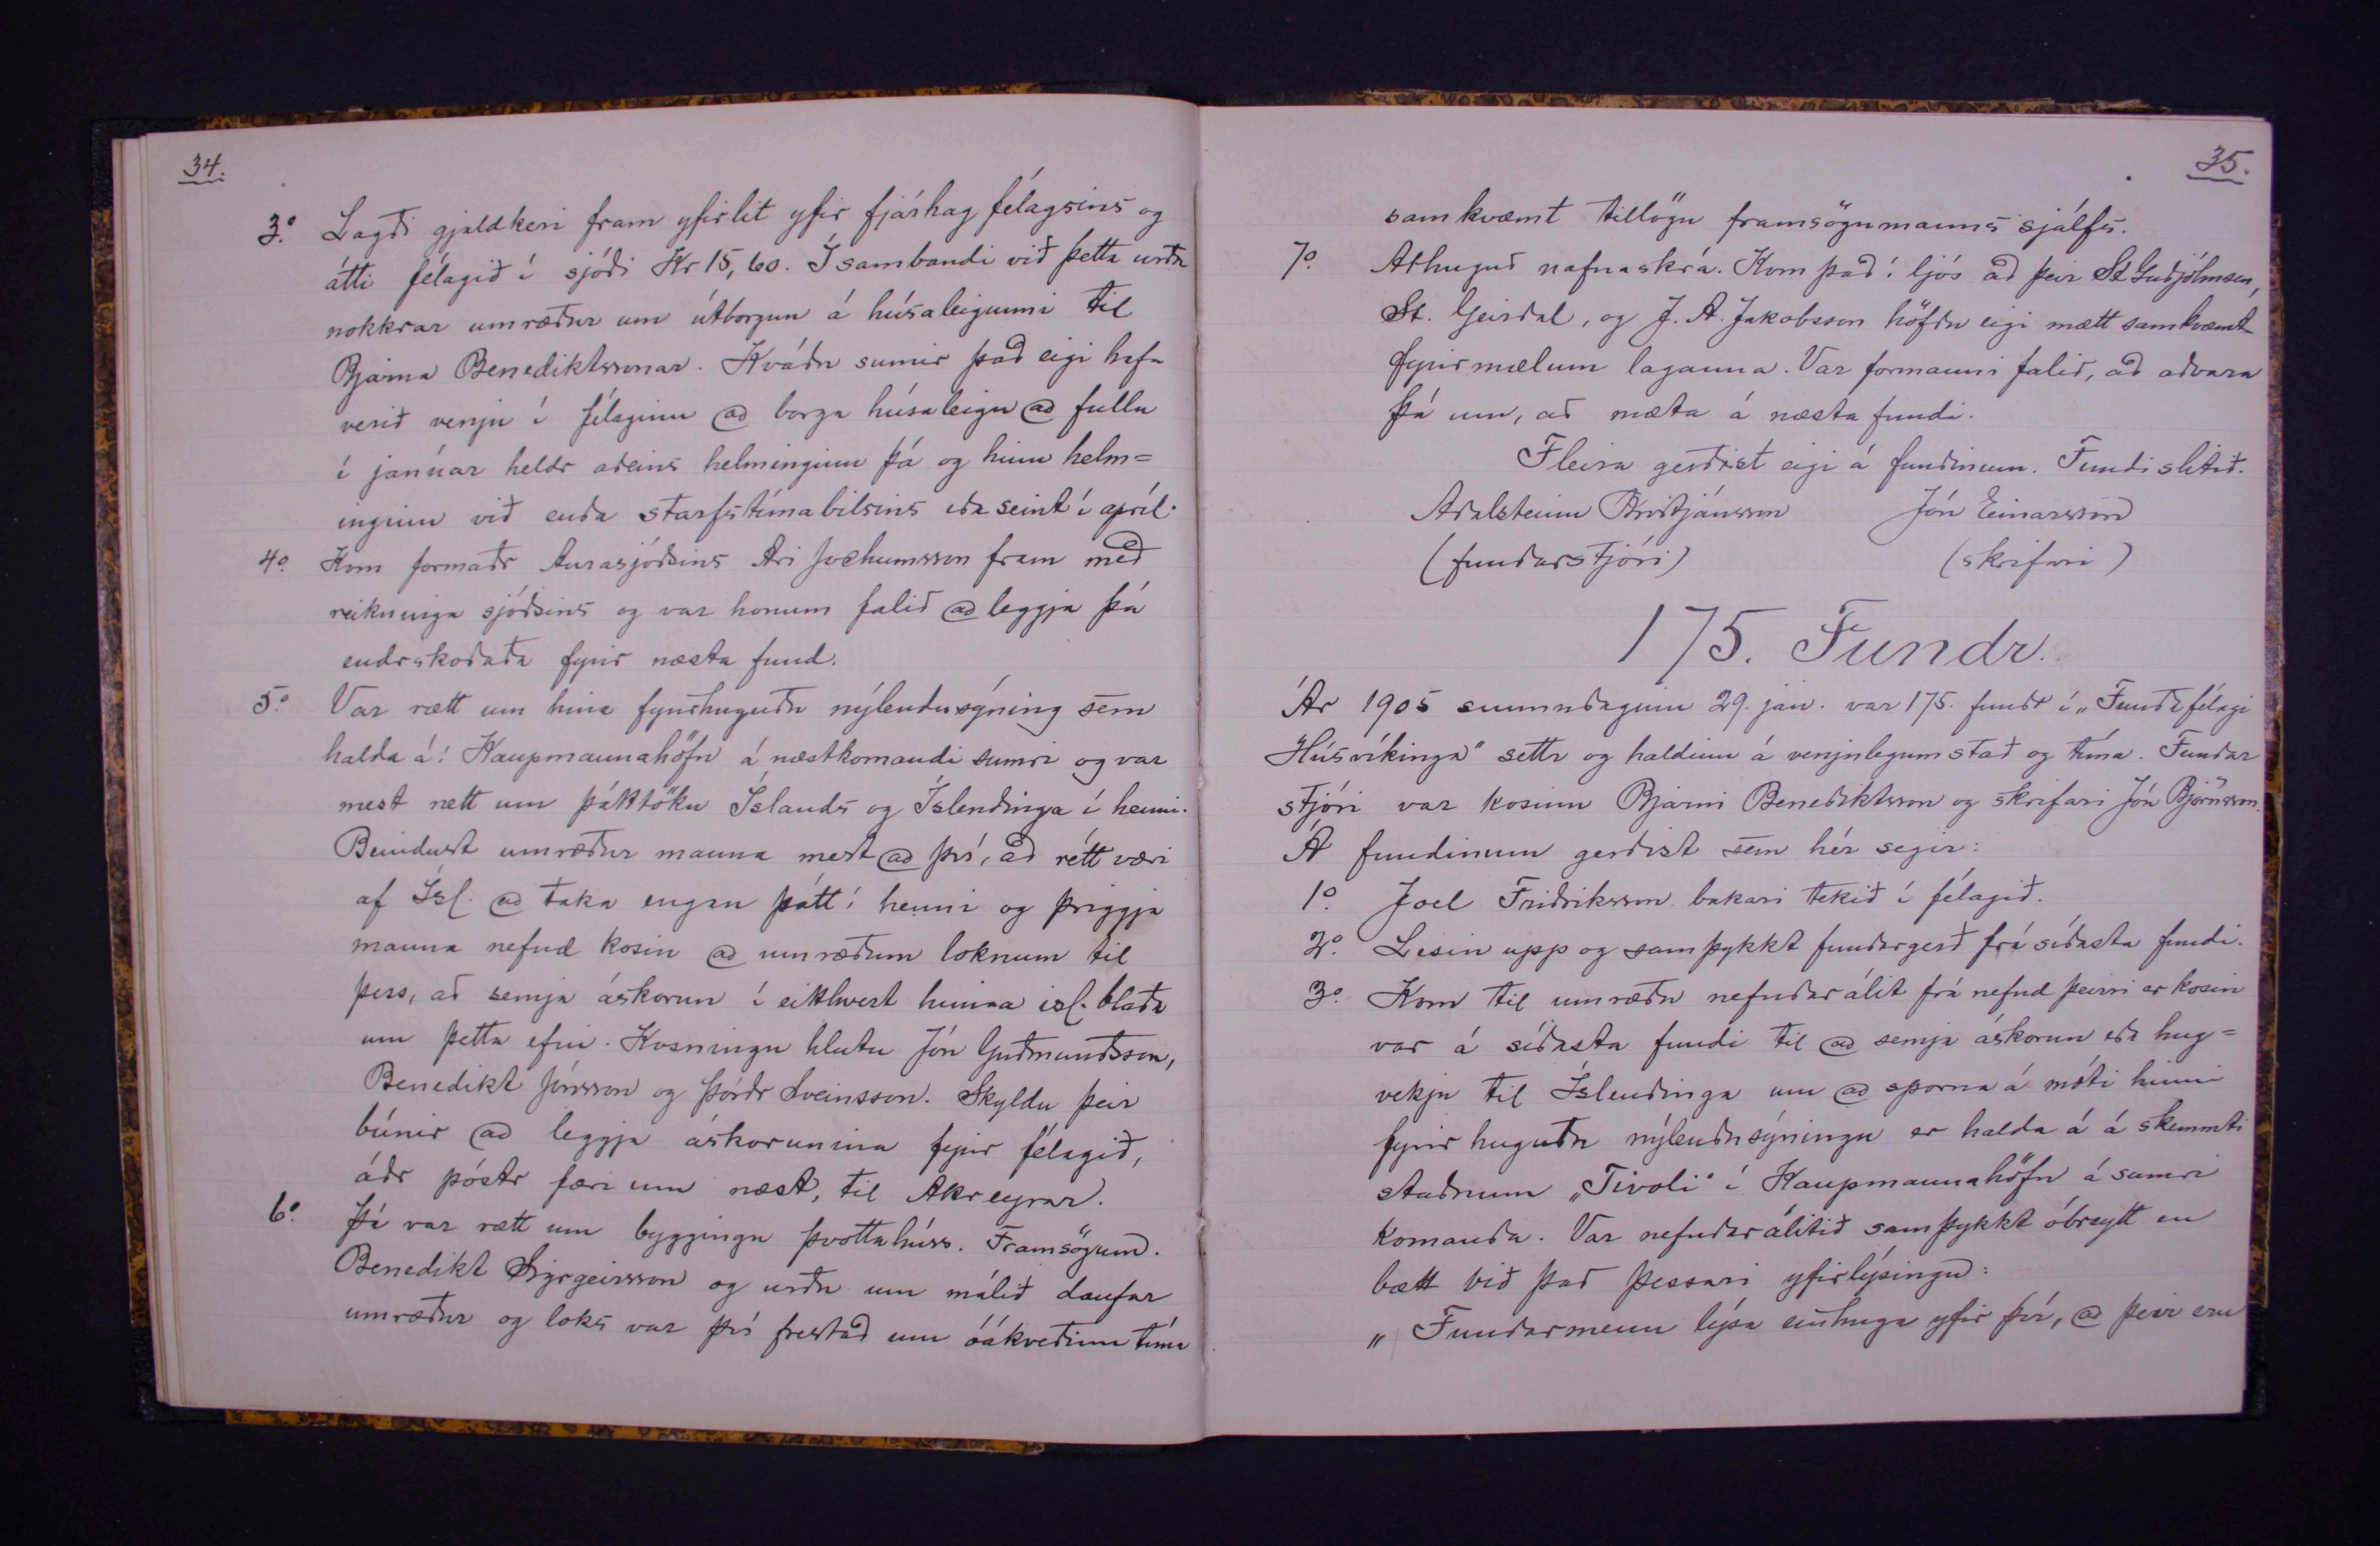 34.
3.o Lagði gjaldkeri fram yfirlit yfir fjárhag félagsins og
átti félagið í sjóði Kr 15,60. Í sambandi við þetta urðu
nokkrar umræður um útborgun á húsaleigunni til
Bjarna Benediktssonar. Kváðu sumir það eigi hafa
verið venju í félaginu að borga húsaleigu að fullu
í janúar heldr aðeins helminginn þá og hinn helm=
inginn við enda starfstímabilsins eða seint í apríl.
4.o Kom formaðr Aurasjóðsins Ari Jochumsson fram með
reikninga sjóðsins og var honum falið að leggja þá
endrskoðaða fyrir næsta fund.
5.o Var rætt um hina fyrirhuguðu nýlendusýning sem
halda á í Kaupmannahöfn á næstkomandi sumri og var
mest rætt um þátttöku Íslands og Íslendinga í henni.
Beindust umræður manna mest að því, að rétt væri
af Ísl. að taka engan þátt í henni og þriggja
manna nefnd kosin að umræðum loknum til
þess, að semja áskorun í eitthvert hinna ísl. blaða
um þetta efni. Kosningu hlutu Jón Guðmundsson,
Benedikt Jónsson og Þórðr Sveinsson. Skyldu þeir
búnir að leggja áskorunina fyrir félagið,
áðr póstr færi um næst, til Akreyrar.
6.o Þá var rætt um byggingu þvottahúss. Framsögum.
Benedikt Sigrgeirsson og urðu um málið daufar
umræður og loks var því frestað um óákveðinn tíma
35.
samkvæmt tillögu framsögumanns sjálfs.
7.o Athuguð nafnaskrá. Kom það í ljós að þeir St Guðjohnsen,
St. Geirdal, og J. A. Jakobsson höfðu eigi mætt samkvæmt
fyrirmælum laganna. Var formanni falið, að aðvara
þá um, að mæta á næsta fundi.
Fleira gerðist eigi á fundinum. Fundi slitið.
Aðalsteinn Kristjánsson Jón Einarsson
(fundarstjóri) (skrifari)
175. Fundr.
Ár 1905 sunnudaginn 29. jan. var 175. fundr í „Fundafélagi
Húsvíkinga" settr og haldinn á venjulegum stað og tíma. Fundar
stjóri var kosinn Bjarni Benediktsson og skrifari Jón Björnsson.
Á fundinum gerðist sem hér segir:
1.o Joel Friðriksson bakari tekið í félagið.
2.o Lesin upp og samþykkt fundargerð frá síðasta fundi.
3.o Kom til umræðu nefndarálit frá nefnd þeirri er kosin
var á síðasta fundi til að semja áskorun eða hug=
vekju til Íslendinga um að sporna á móti hinni
fyrirhuguðu nýlendusýningu er halda á á skemmti
staðnum „Tivoli" í Kaupmannahöfn á sumri
komanda. Var nefndarálitið samþykkt óbreytt en
bætt við það þessari yfirlýsingu:
„Fundarmenn lýsa einhuga yfir því, að þeir eru